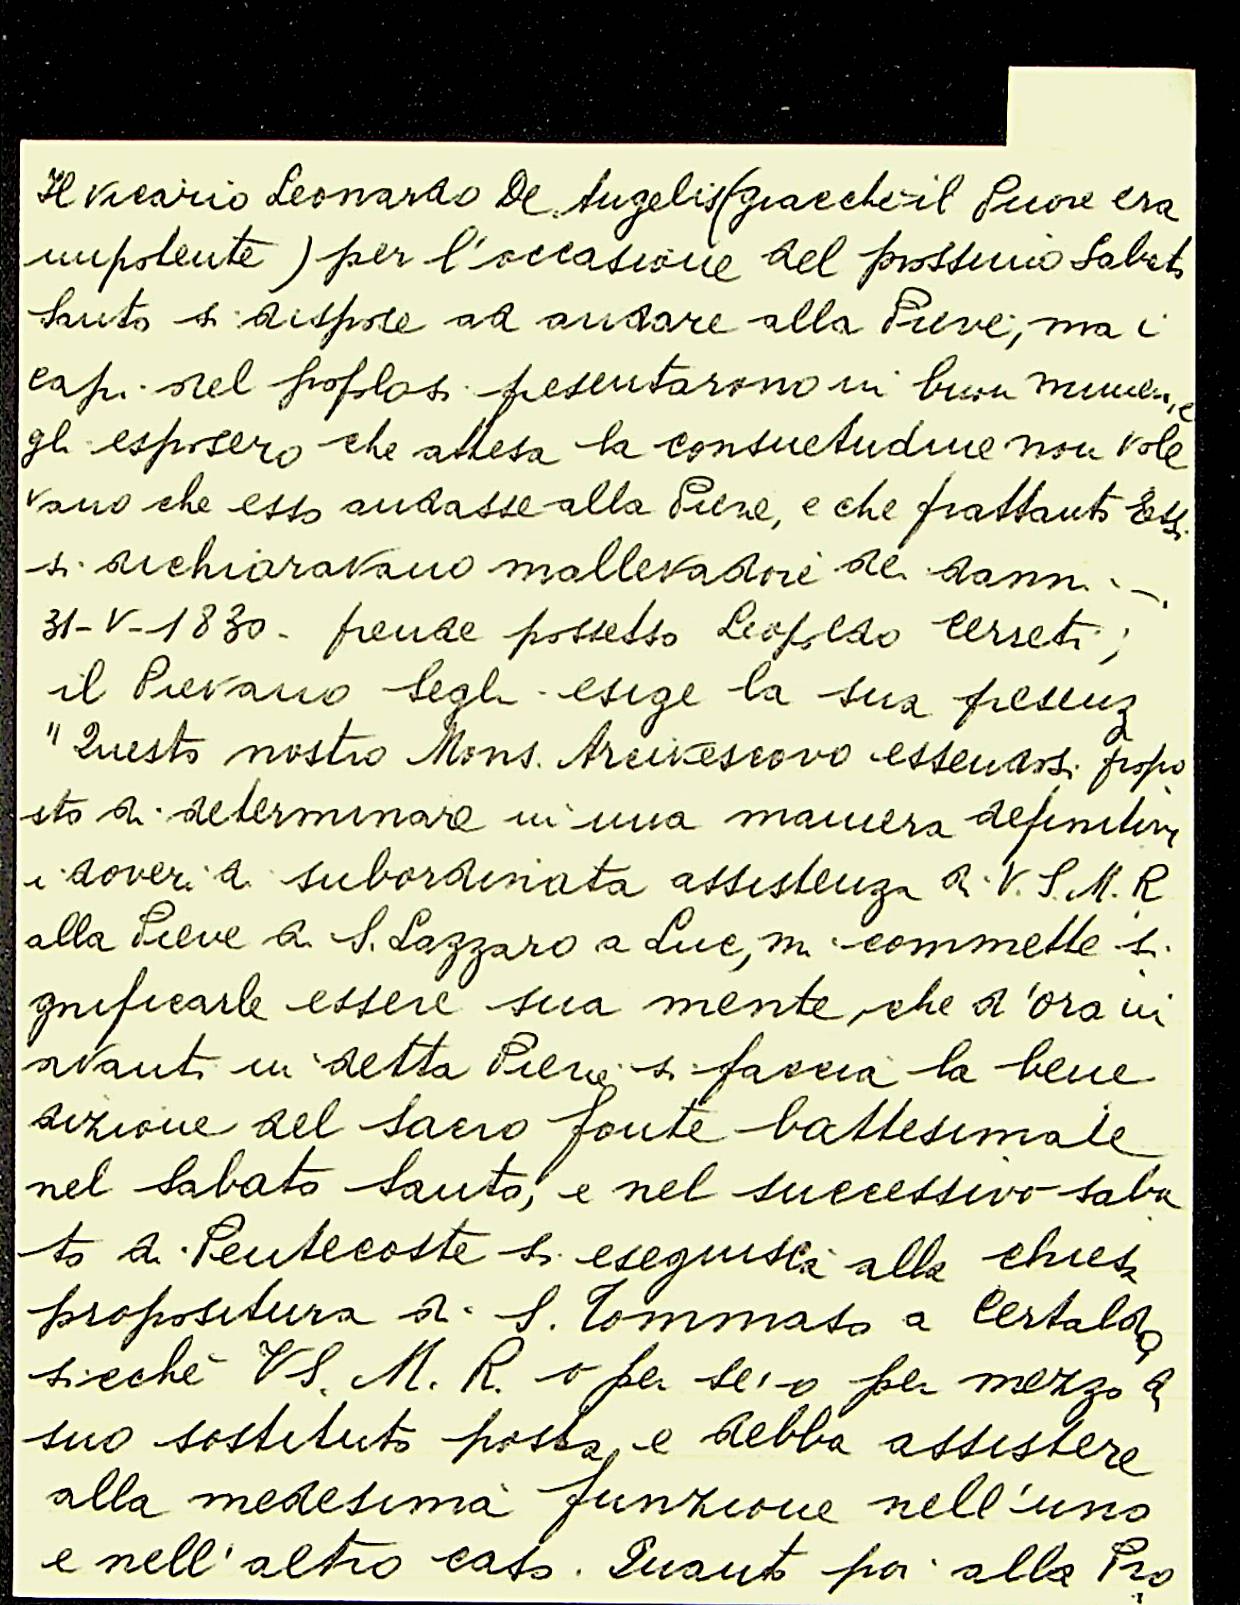 Il vicario Leonardo De Angelis (giacchè il Priore era
impotente) per l'occasione del prossimo Sabato
Santo si dispose ad andare alla Pieve, ma i
capi del popolo si presentarono in buon numero, e
gli esposero che attesa la consuetudine non vole
vano che esso andasse alla Pieve, e che frattanto Essi
si dichiaravano mallevadori dei danni.
31-V-1830- prende possesso Leopoldo Cerreti;
il Pievano Seghi esige la sua presenza
"Questo nostro Mons. Arcivescovo essendosi propo
sto di determinare in una maniera definitiva
i doveri di subordinata assistenza di V.S.M.R
alla Pieve di S. Lazzaro a Luc, mi commette si
gnificarle essere sua mente, che d'ora in
avanti in detta Pieve si faccia la bene
dizione del Sacro fonte battesimale
nel Sabato Santo, e nel successivo saba
to di Pentecoste si eseguisca alla chiesa
propositura di S. Tommaso a Certaldo,
sicchè VS. M. R. o per se, o per mezzo di
suo sostituto possa, e debba assistere
alla medesima funzione nell'uno
e nell'altro caso. Quanto poi alla Pro